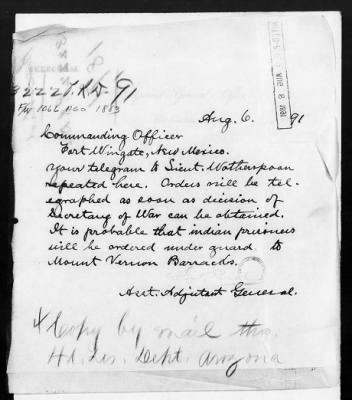 92227.R.D. 91
1066 Aco 1883
Aug. 6. 91
AUG 6 1891
Commanding Officer
Fort Wingate, New Mexico.
Your telegram to Lieut. Wotherspoon
repeated here. Orders will be tel-
egraphed as soon as decision of
Secretary of War can be obtained.
It is probable that indian prisoners
will be ordered under guard to
Mount Vernon Barracks.
Asst. Adjutant General.
Copy by mail thro.
Hd. Qrs. Dept. Arizona